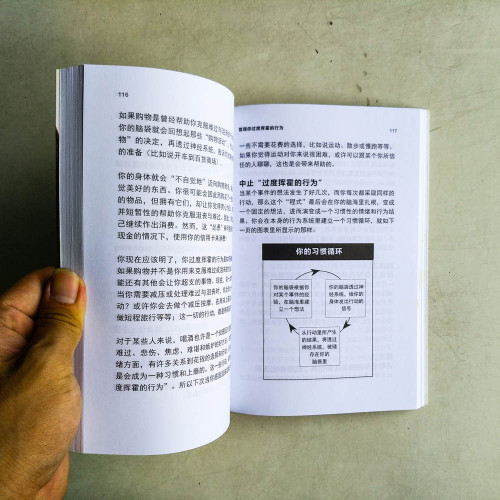 116
如果购物是曾经帮助你克服难过与
你的脑袋就会回想起那些“购物
物”的决定，再透过神经系统，
的准备（比如说开车到百货商场）
你的身体就会“不自觉地”迈向购物
觉美好的东西。你很可能会因此
的物品，但拥有它们，却让你觉得
并短暂性的帮助你克服沮丧与难过
己继续作出消费。然而，这“
现金的情况下，使用你的信用卡来消费！
你现在应该明了，你过度挥霍的行为
如果购物并不是你用来克服难过或
能还有其他会让你超支的事物，
当你需要减压或处理难过与沮丧时，
做，或许你会去做个减压按摩，
做短程旅行等等；这一切的行动，
对于某些人来说，喝酒也许是一个
难过、悲伤、焦虑、难堪和嫉妒
绪方面，有许多关系到花钱的选择
是会成为一种习惯和上瘾的。这
度挥霍的行为”。所以下次当你
管理你过度挥霍的行为
117
一些不需要花费的选择，比如说运动、散步或慢跑等等。
如果你觉得运动对你来说很困难，或许可以跟某个你所信
任的人聊聊，这也是会带来帮助的。
中止“过度挥霍的行为”
当某个事件的想法发生了好几次，而你每次都采取同样的
行动，那么这个“程式”最后会在你的脑海里扎根，变成
一个固定的想法，进而演变成一个习惯性的情绪和行为结
果。你会在本身的行为系统里建立一个习惯循环，就如下
一页的图表里所显示的那样。
你的习惯循环
你的脑袋根据你
对某个事件的经
验，在脑海里建
立一个想法
你的脑袋透过神
经系统，给你的
身体发出行动的
信号
从行动里所产生
的结果，将透过
神经系统，被储
存在你的
脑袋里